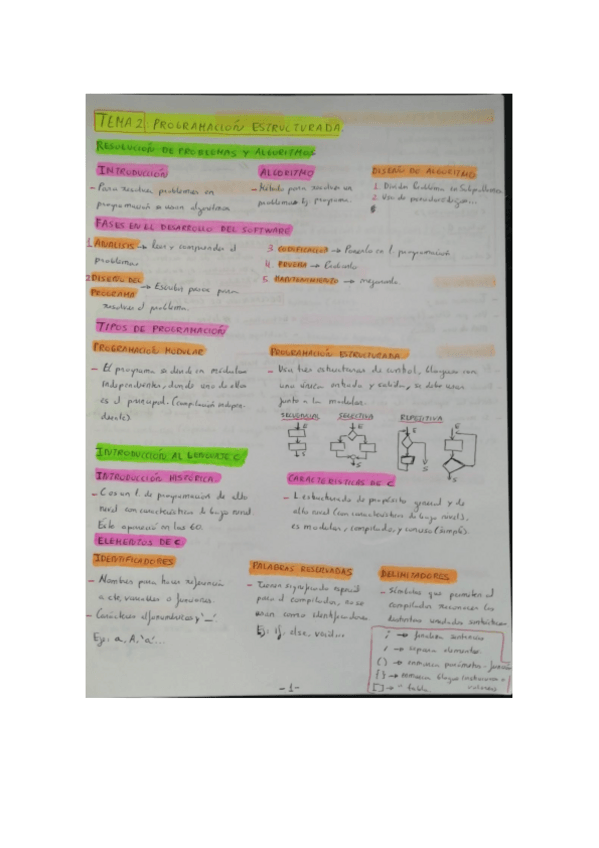 TEMA 2. PROGRAMACIÓN ESTRUCTURADA.
RESOLUCIÓN DE PROBLEMAS Y ALGORITMOS
INTRODUCCIÓN
- Para resolver problemas en
programación se usan algoritmos
ALGORITMO
- Método para resolver un
problema. Ej. programa.
DISEÑO DE ALGORITMO
1. Dividir Problema en Subproblemas
2. Uso de pseudocódigo...
FASES EN EL DESARROLLO DEL SOFTWARE
1 ANALISIS → leer y comprender el
problema.
2 DISEÑO DEL
PROGRAMA → Escribir pasos para
resolver el problema.
3. CODIFICACIÓN → Pasarlo a l. programación
4. PRUEBA →
5. MANTENIMIENTO →
TIPOS DE PROGRAMACIÓN
PROGRAMACIÓN MODULAR
- El programa se divide en módulos
independientes, donde uno de ellos
es el principal. (compilación indepen-
diente)
PROGRAMACIÓN ESTRUCTURADA
- Usa tres estructuras de control, bloques con
una única entrada y salida, se debe usar
junto a la modular.
SECUENCIAL SELECTIVA REPETITIVA
E E E E
S S S S
INTRODUCCIÓN AL LENGUAJE C
INTRODUCCIÓN HISTÓRICA
- C es un l. de programación de alto
nivel con características de bajo nivel.
aparición en los 60.
CARACTERÍSTICAS DE C
- L estructurado de propósito general y de
alto nivel (con características de bajo nivel),
es modular, compilado, y conciso (simple).
ELEMENTOS DE C
IDENTIFICADORES
- Nombres para hacer referencia
a cte, variables o funciones.
- Carácteres alfanuméricos y '_'.
Ej. a, A, 'a'...
PALABRAS RESERVADAS
- Tienen significado especial
para el compilador, no se
usan como identificadores
Ej: if, else, void...
DELIMITADORES
- Símbolos que permiten al
compilador reconocer las
unidades sintácticas
; → finalizar sentencias
, → separa elementos
( ) → enmarca parámetros - función
{ } → enmarca bloque instrucciones o
valores
[ ] → " tabla
- 1 -